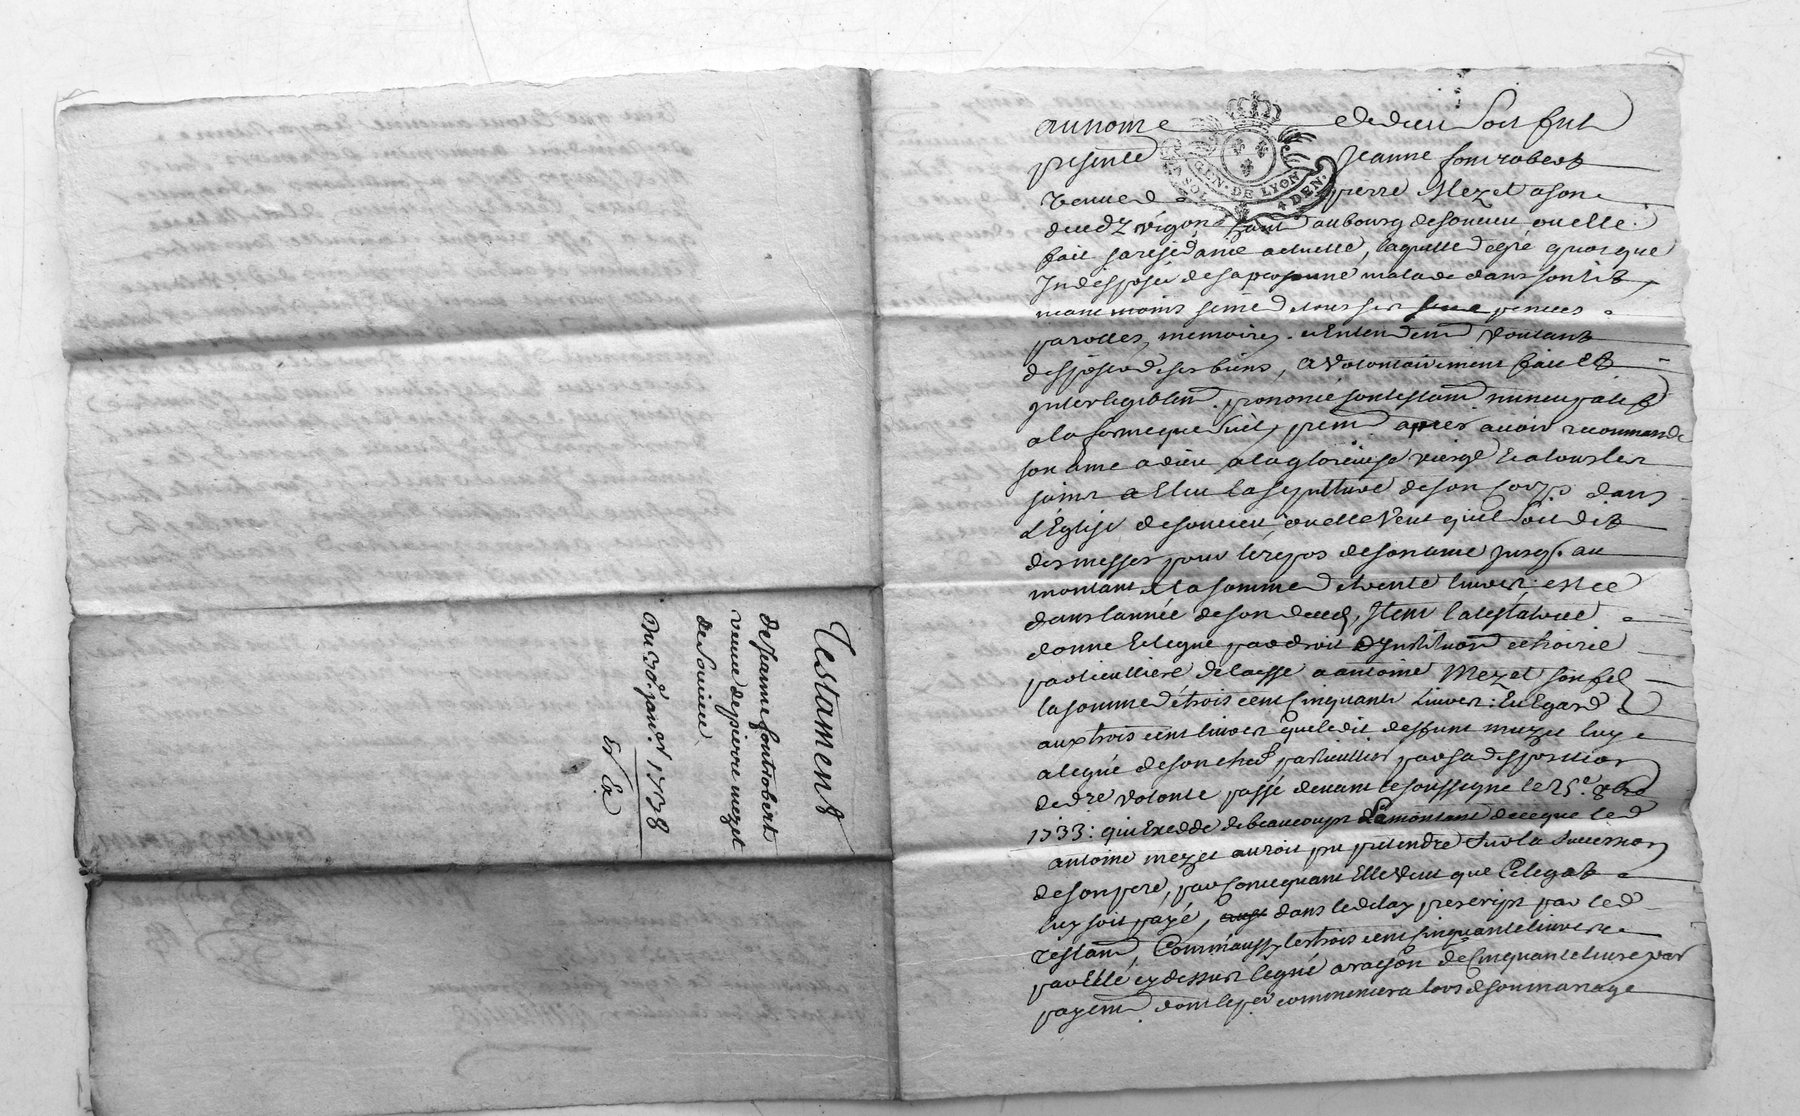 Testament
de Jeanne fontrobert
veuve de pierre mezet
de Soucieu
Du 30e. jan.er 1738
Et Ex
au nom e de dieu Soit fut
presente jeanne fontrobert
veuve d pierre Mezet a son
deced vigon au bourg de soucieu ou elle
fait sa residance actuelle, laquelle de gré quoique
Indisposée de sa personne malade dans son lit
neanmoins seine de tous ses sens pensees
parolles, memoires et Entendem voulant
disposer de ses biens, a volontairement fait et
Inteligiblem prononcé son testam nuncupatif
a la forme que suit, prem apres avoir recommandé
son ame a dieu, a la glorieuse vierge Et a tous les
saints a Eleu la sepulture de son corps dans
L'Eglise de soucieu ou elle veut quil soit dit
des messes pour le repos de son ame jusq. au
montant de la somme de trente livres: et ce
dans lannée de son deced, Item la testatrice
donne Et legue par droit d'Institution et hoirie
particulliere delaisse a antoine Mezet son fil
la somme de trois cent Cinquante Livres: Eu Egard
aux trois cent livres que ledit deffunt mezet luy
a legué de son chef particullier par sa disposition
de dre volonté passé devant le soussigne le 25e. 8bre
1733: qui Excedde de beaucoup le montant de ce que led
antoine mezet auroit pu pretendre sur la succession
de son pere, par consequant Elle veut que ce legat
luy soit payé, dans le delay prescript par led
testam, Comm'aussy les trois cent cinquante livres
par Elle cy dessus legué a raison de Cinquante livre par
payem dont le per commencera lors de son mariage
GEN. DE LYON
DEN.